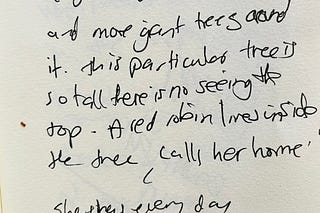 and more giant trees around
it. this particular tree is
so tall there is no seeing the
top. A red robin lives inside
the tree calls her home'
she every day